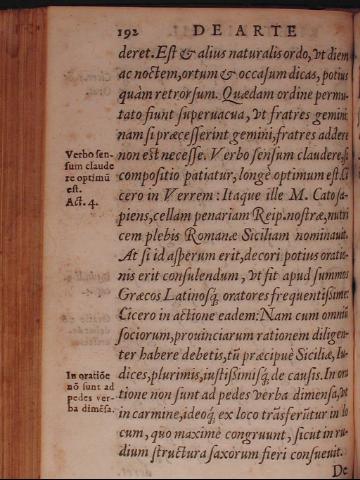 192 DE ARTE
deret. Est & alius naturalis ordo, vt diem
ac noctem, ortum & occasum dicas, potius
quàm retrorsum. Quædam ordine permu-
tato fiunt superuacua, vt fratres gemini;
nam si præcesserint gemini, fratres addere
non est necesse. Verbo sensum claudere, si
compositio patiatur, longè optimum est. Ci
cero in Verrem: Itaque ille M. Cato sa-
piens, cellam penariam Reip. nostræ, nutri
cem plebis Romanæ Siciliam nominauit.
At si id asperum erit, decori potius oratio-
nis erit consulendum, vt fit apud summos
Græcos Latinosq́; oratores frequentissimè:
Cicero in actione eadem: Nam cum omniũ
sociorum, prouinciarum rationem diligen-
ter habere debetis, tũ præcipuè Siciliæ, Iu-
dices, plurimis, iustissimisq́; de causis. In ora
tione non sunt ad pedes verba dimensa, vt
in carmine, ideoq́; ex loco trãsferũtur in lo
cum, quo maximè congruunt, sicut in ru-
dium structura saxorum fieri consueuit.
De
Verbo sen-
sum claude
re optimũ
est.
Act. 4.
In oratiõe
nõ sunt ad
pedes ver-
ba dimẽsa.